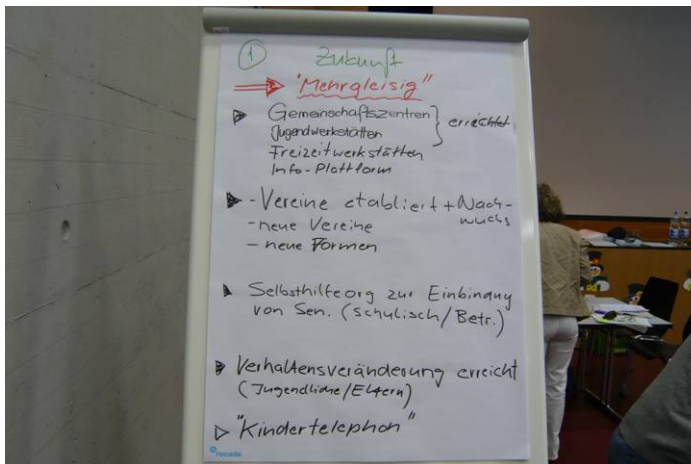 ① Zukunft
"Mehrgleisig"
Gemeinschaftszentren
Jugendwerkstätten } errichtet
Freizeitwerkstätten
Info-Plattform
- Vereine etabliert + Nach-
wuchs
- neue Vereine
- neue Formen
Selbsthilfeorg zur Einbindung
von Sen. (schulisch/Betr.)
Verhaltensveränderung erreicht
(Jugendliche/Eltern)
"Kindertelephon"
rocada